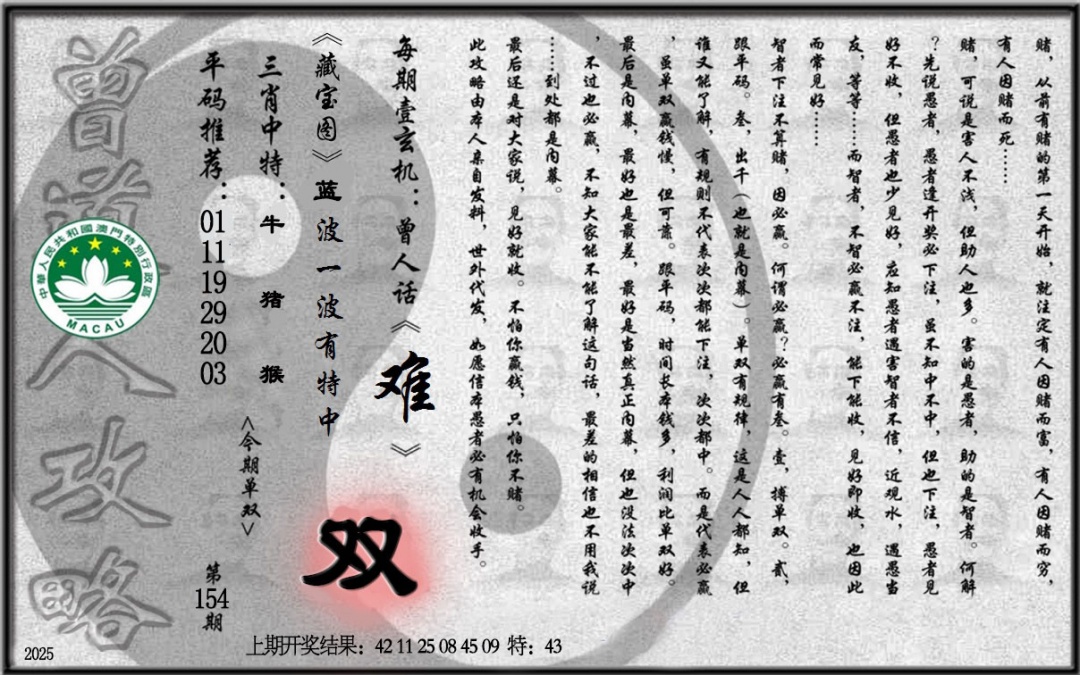 赌，从前有赌的第一天开始，就注定有人因赌而富，有人因赌而穷，
有人因赌而死……
赌，可说是害人不浅，但助人也多。害的是愚者，助的是智者。何解
？先说愚者，愚者逢开奖必下注，虽不知中不中，但也下注，愚者见
好不收，但愚者也少见好，应知愚者遇害智者不信，近观水，遇愚当
友，等等……而智者，不智必赢不注，能下能收，见好即收，也因此
而常见好……
智者下注不算赌，因必赢。何谓必赢？必赢有叁。壹，搏单双。贰，
跟平码。叁，出千（也就是内幕）。单双有规律，这是人人都知，但
谁又能了解，有规则不代表次次都能下注，次次都中。而是代表必赢
，虽单双赢钱慢，但可靠。跟平码，时间长本钱多，利润比单双好。
最后是内幕，最好也是最差，最好是当然真正内幕，但也没法次次中
，不过也必赢，不知大家能不能了解这句话，最差的相信也不用我说
……到处都是内幕。
最后还是对大家说，见好就收。不怕你赢钱，只怕你不赌。
此攻略由本人亲自发料，世外代发，如愿信本愚者必有机会收手。
每期壹玄机：曾人话《难》
《藏宝图》蓝波一波有特中
双
三肖中特：牛 猪 猴
<今期单双>
平码推荐：01 11 19 29 20 03
第154期
曾道人攻略
中華人民共和國澳門特別行政區
MACAU
上期开奖结果：42 11 25 08 45 09 特：43
2025